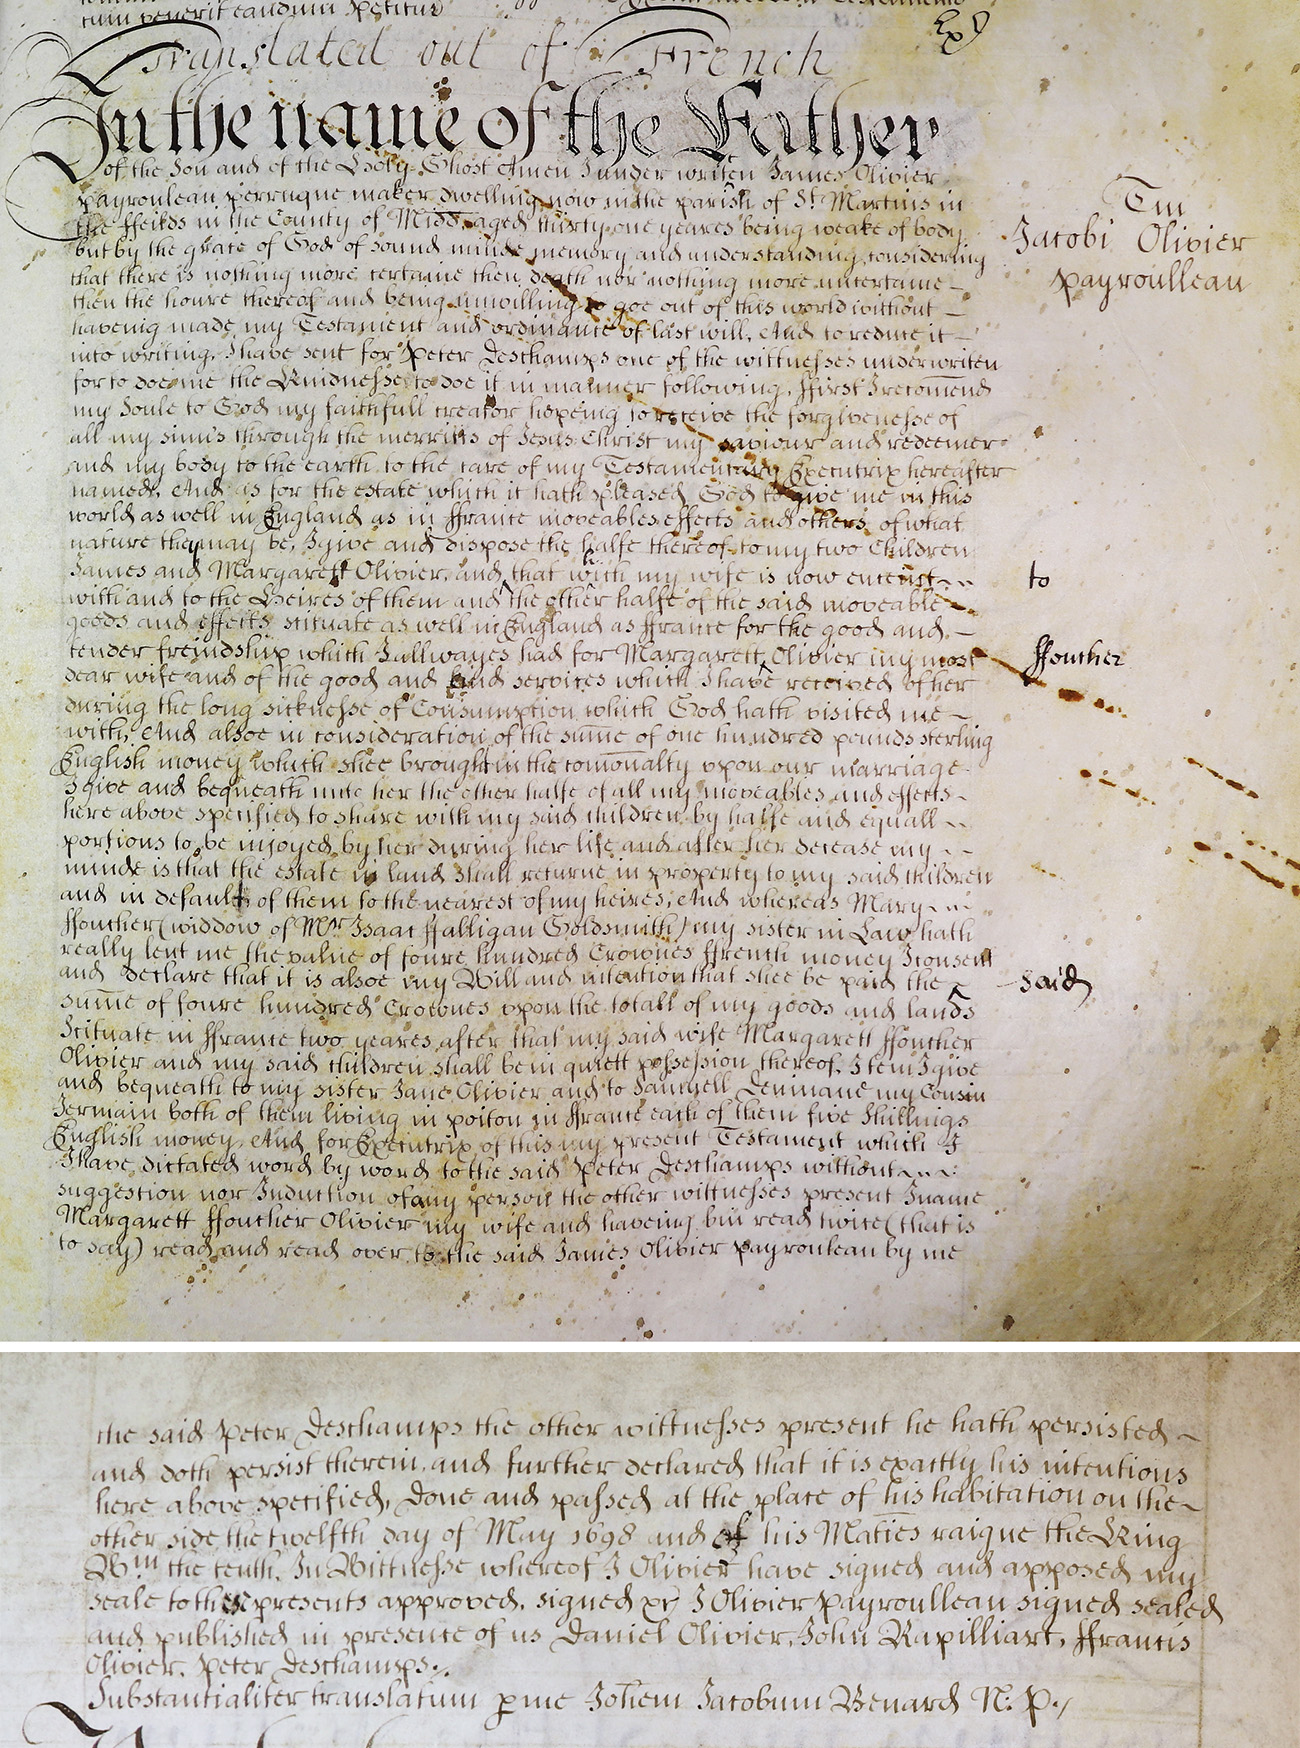 tum venerit eandum petitur
Translated out of French
In the name of the Father
of the Son and of the Holy Ghost Amen I under writen James Olivier
payrouleau perruque maker dwelling now in the parish of St Martins in
the ffeilds in the County of Midd aged thirty one yeares being weake of body
but by the grace of God of sound minde memory and understanding, considering
that there is nothing more certaine then death nor nothing more uncertaine
then the houre thereof and being unwilling to goe out of this world without
haveing made my Testament and ordinance of last will, And to reduce it
into writing, I have sent for Peter Deschamps one of the wittnesses underwriten
for to doe me the Kindnesse to doe it in manner following, ffirst I recomend
my Soule to God my faithfull creator hopeing to receive the forgivenesse of
all my sinns through the merritts of Jesus Christ my saviour and redeemer
and my body to the earth to the care of my Testamentary Executrix hereafter
named, And as for the estate which it hath pleased God to give me in this
world as well in England as in ffrance moveables effects and others of what
nature they may be, I give and dispose the halfe thereof to my two Children
James and Margarett Olivier, and that wch my wife is now enceint
with and to the Heires of them and the other halfe of the said moveable
goods and effects scituate as well in England as ffrance for the good and
tender freindship which I allwayes had for Margarett Olivier my most
dear wife and of the good and kind services which I have received of her
during the long sicknesse of Consumption which God hath visited me
with, And alsoe in consideration of the sume of one hundred pounds sterling
English money which shee brought in the comonalty upon our marriage
I give and bequeath unto her the other halfe of all my moveables and effects
here above specified to share with my said children by halfe and equall
portions to be injoyed by her during her life and after her decease my
minde is that the estate in land shall returne in property to my said children
and in default of them to the nearest of my heires, And whereas Mary
ffouther (widdow of Mr Isaac ffalligan Goldsmith) my sister in Law hath
really lent me the value of foure hundred Crownes ffrench money I consent
and declare that it is alsoe my Will and intention that shee be paid the
sume of foure hundred Crownes upon the totall of my goods and lands
Scituate in ffrance two yeares after that my said wife Margarett ffouther
Olivier and my said children shall be in quiett possession thereof, Item I give
and bequeath to my sister Jane Olivier and to Samuell Deninane my Cousin
Jermain both of them living in poitou in ffrance each of them five Shillings
English money, And for Executrix of this my present Testament which I
I have dictated word by word to the said Peter Deschamps without
suggestion nor Induction of any person the other wittnesses present I name
Margarett ffouther Olivier my wife and haveing bin read twice (that is
to say) read and read over to the said James Olivier payrouleau by me
Exd
Tm
Jacobi Olivier
payroulleau
to
ffouther
said
the said Peter Deschamps the other wittnesses present he hath persisted
and doth persist therein, and further declared that it is exactly his intentions
here above specified, Done and passed at the place of his habitation on the
other side the twelfth day of May 1698 and of his Maties raigne the King
Wm the tenth, In Wittnesse whereof I Olivier have signed and apposed my
seale to these presents approved, signed xr J Olivier Payroulleau signed sealed
and published in presence of us Daniel Olivier, John Rapilliart, ffrancis
Olivier, Peter Deschamps.
Substantialiter translatum p me Johem Jacobum Benard N: P.